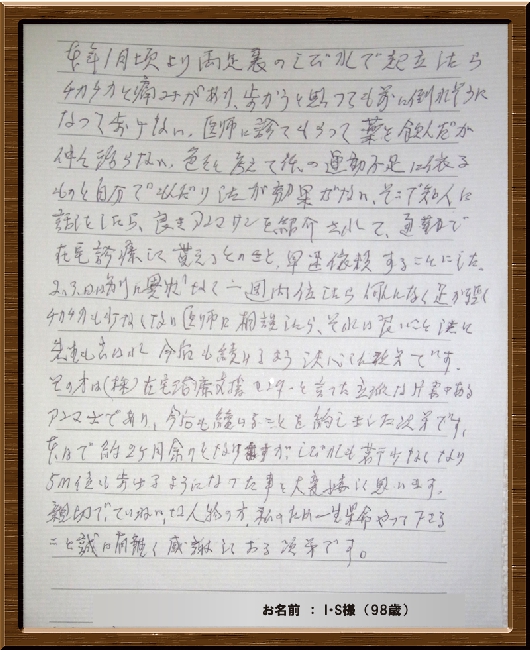 本年1月頃より両足裏のしびれで起立したら
チカチカと痛みがあり、歩かうと思っても前に倒れそうに
なって歩けない、医師に診てもらって薬を飲んだが
仲々治らない、色々と考えて体の運動不足に依る
ものと自分で
話をしたら、良きアンマサンを紹介されて、通勤で
在宅診療して貰えるとのこと、早速依頼することにした。
2、3日は特に異状なく一週間位したら何んなく足が軽く
チカチカも少なくない医師に相談したら、それは良いこと
先生も云はれて今后も続けるよう決心した次第です。
その方は(株)在宅治療支援センターと言った立派な
アンマ士であり、今后も続けることを約しました次第です。
本日で約2ヶ月余りとなりますが、しびれも若干少なくなり
5m位も歩けるようになった事を大変嬉しく思います。
親切でていねいな人物の方、私のため一生懸命やって下さる
こと誠に有難く感謝しとある次第です。
お名前 : I・S様 (98歳)